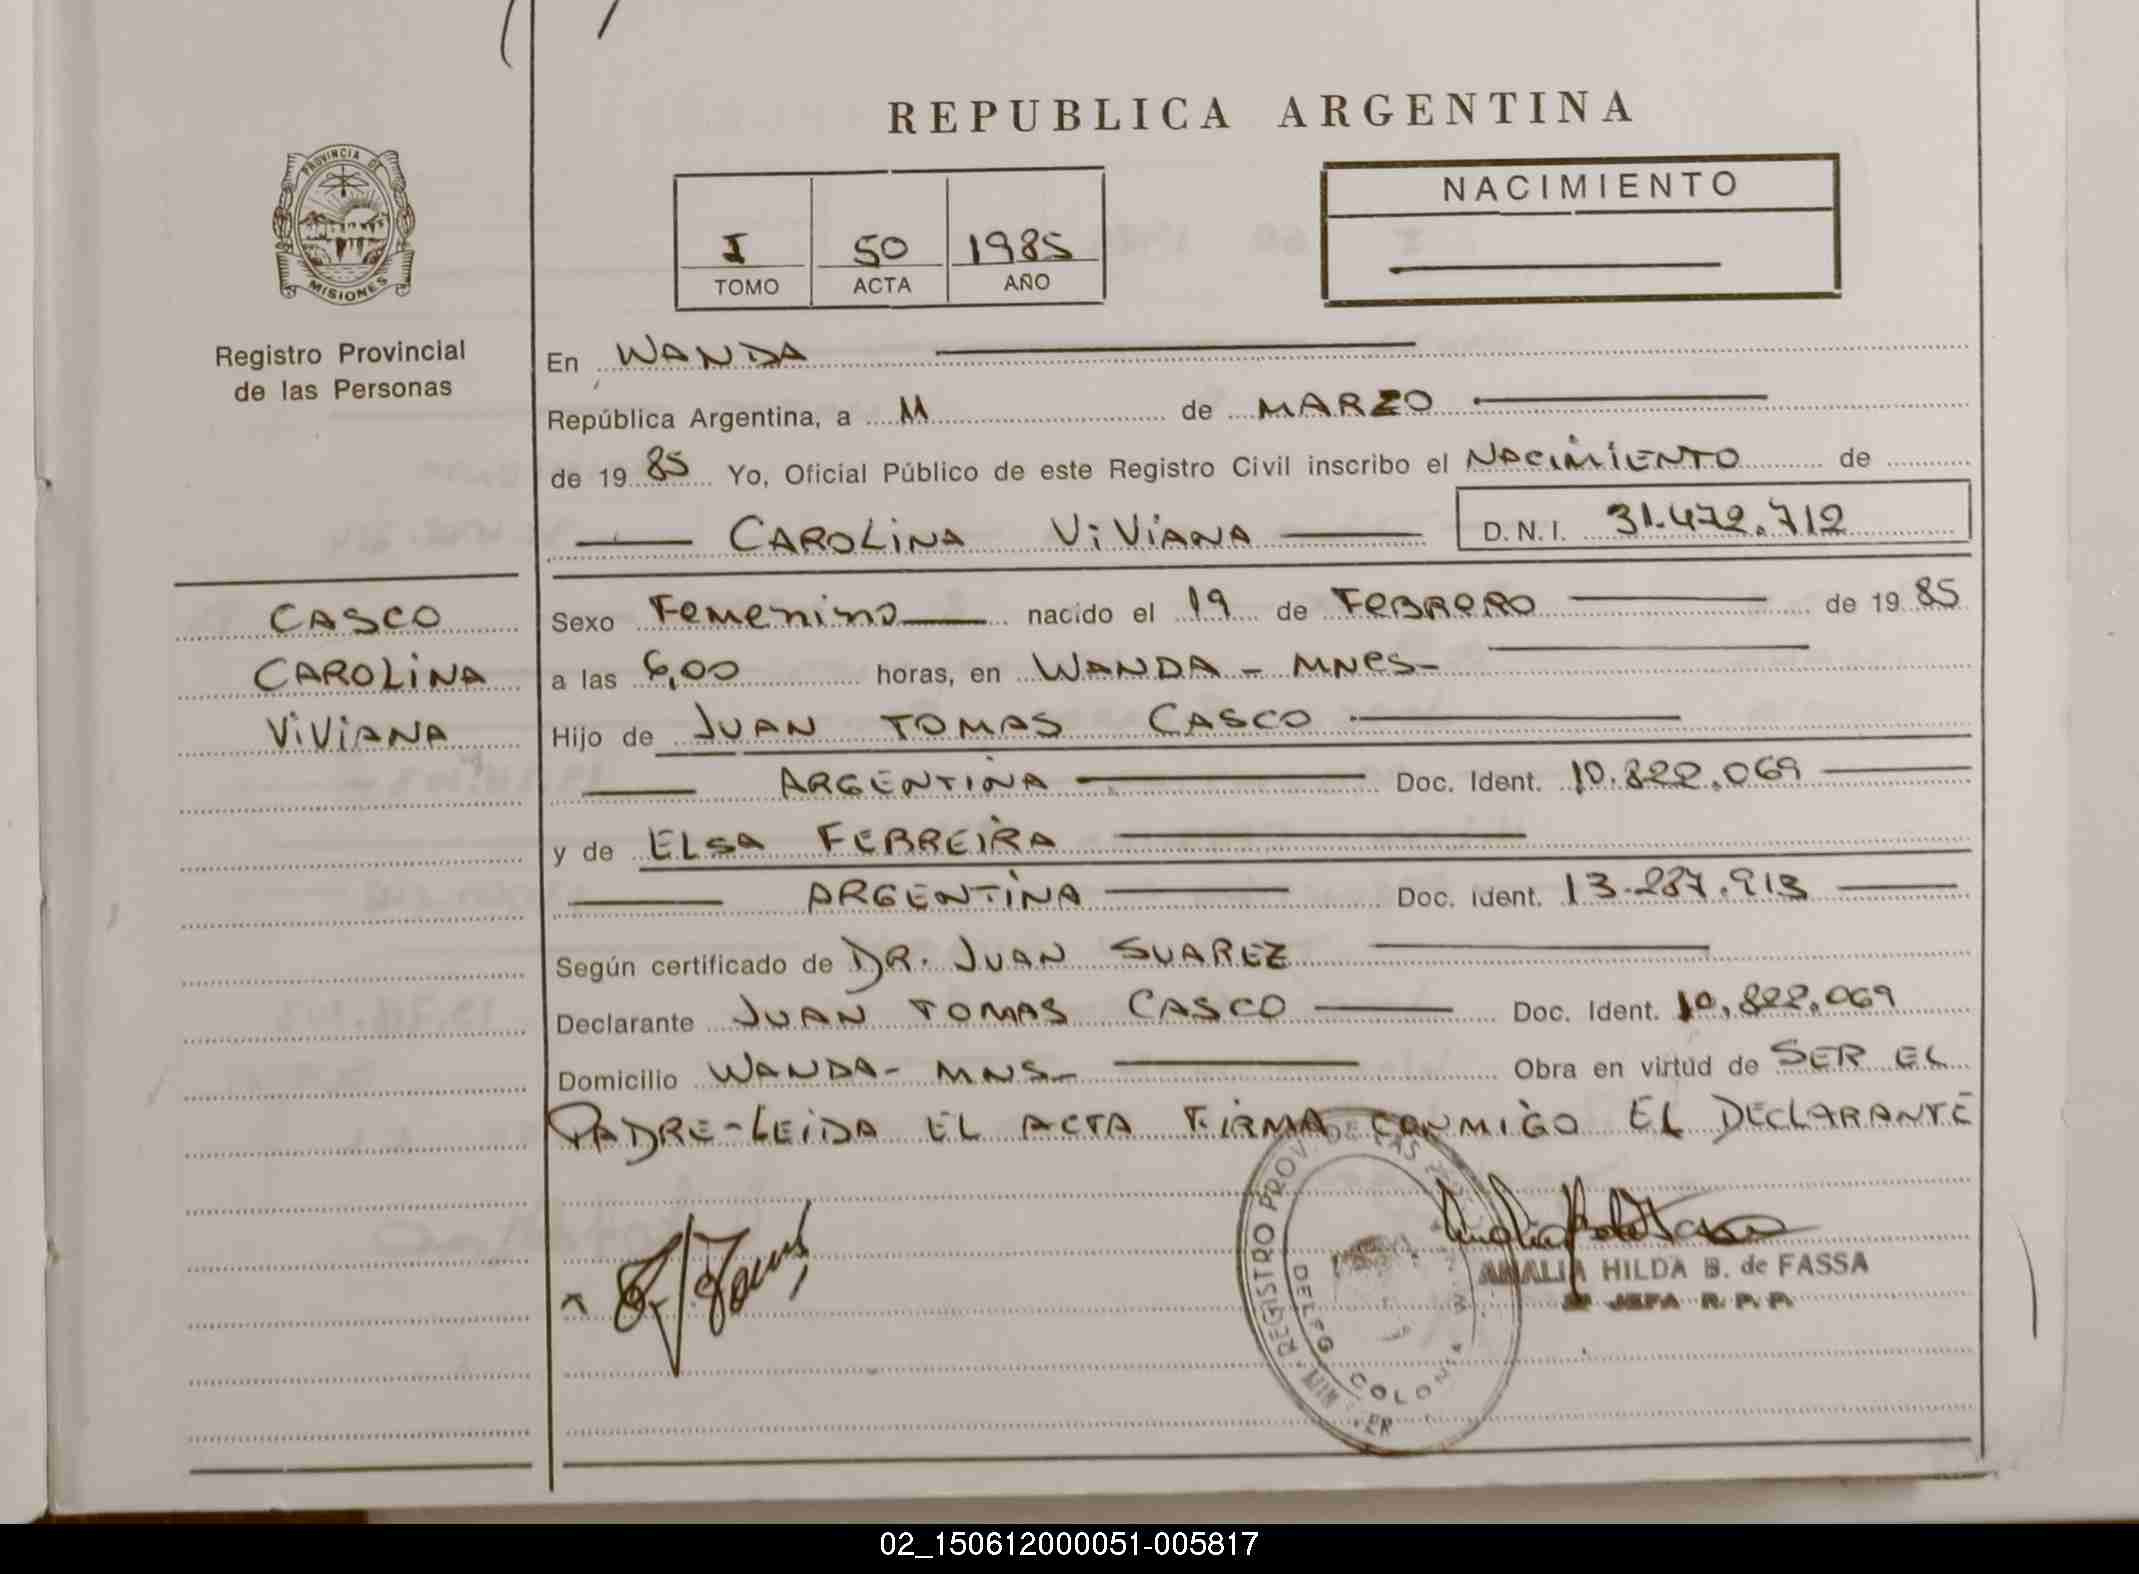 REPUBLICA ARGENTINA
PROVINCIA DE
MISIONES
Registro Provincial
de las Personas
I 50 1985
TOMO ACTA AÑO
NACIMIENTO
En WANDA
República Argentina, a 11 de MARZO
de 1985 Yo, Oficial Público de este Registro Civil inscribo el NACIMIENTO de
CAROLINA VIVIANA D.N.I. 31.472.712
CASCO
CAROLINA
VIVIANA
Sexo Femenino nacido el 19 de FEBRERO de 1985
a las 6,00 horas, en WANDA - MNES-
Hijo de JUAN TOMAS CASCO
ARGENTINA Doc. Ident. 10.822.069
y de ELSA FERREIRA
ARGENTINA Doc. Ident. 13.287.913
Según certificado de DR. JUAN SUAREZ
Declarante JUAN TOMAS CASCO Doc. Ident. 10.822.069
Domicilio WANDA - MNS- Obra en virtud de SER EL
PADRE-LEIDA EL ACTA FIRMA CONMIGO EL DECLARANTE
REGISTRO PROV. DE LAS
DELEG. COLONIA W
AMALIA HILDA B. de FASSA
JEFA R. P. P.
02_150612000051-005817